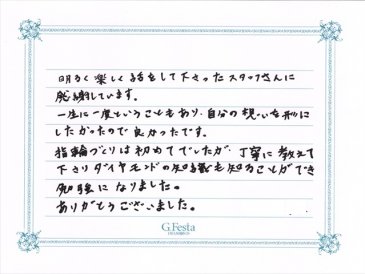 明るく楽しく話をして下さったスタッフさんに
感謝しています。
一生に一度ということもあり、自分の想いを形に
したかったので良かったです。
指輪づくりは初めてでしたが、丁寧に教えて
下さりダイヤモンドの知識も知ることができ
勉強になりました。
ありがとうございました。
G.Festa
DIAMONDS